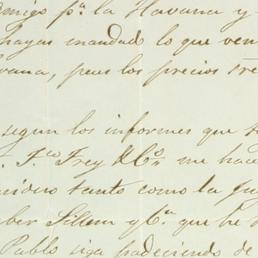 migo pa. la Havana y
hayas mandado lo que ven
vana, pues los precios
segun los informes que
Frey & Co. me hace
tanto como la
ber Sillem y Ca. que he
Pablo siga padeciendo de